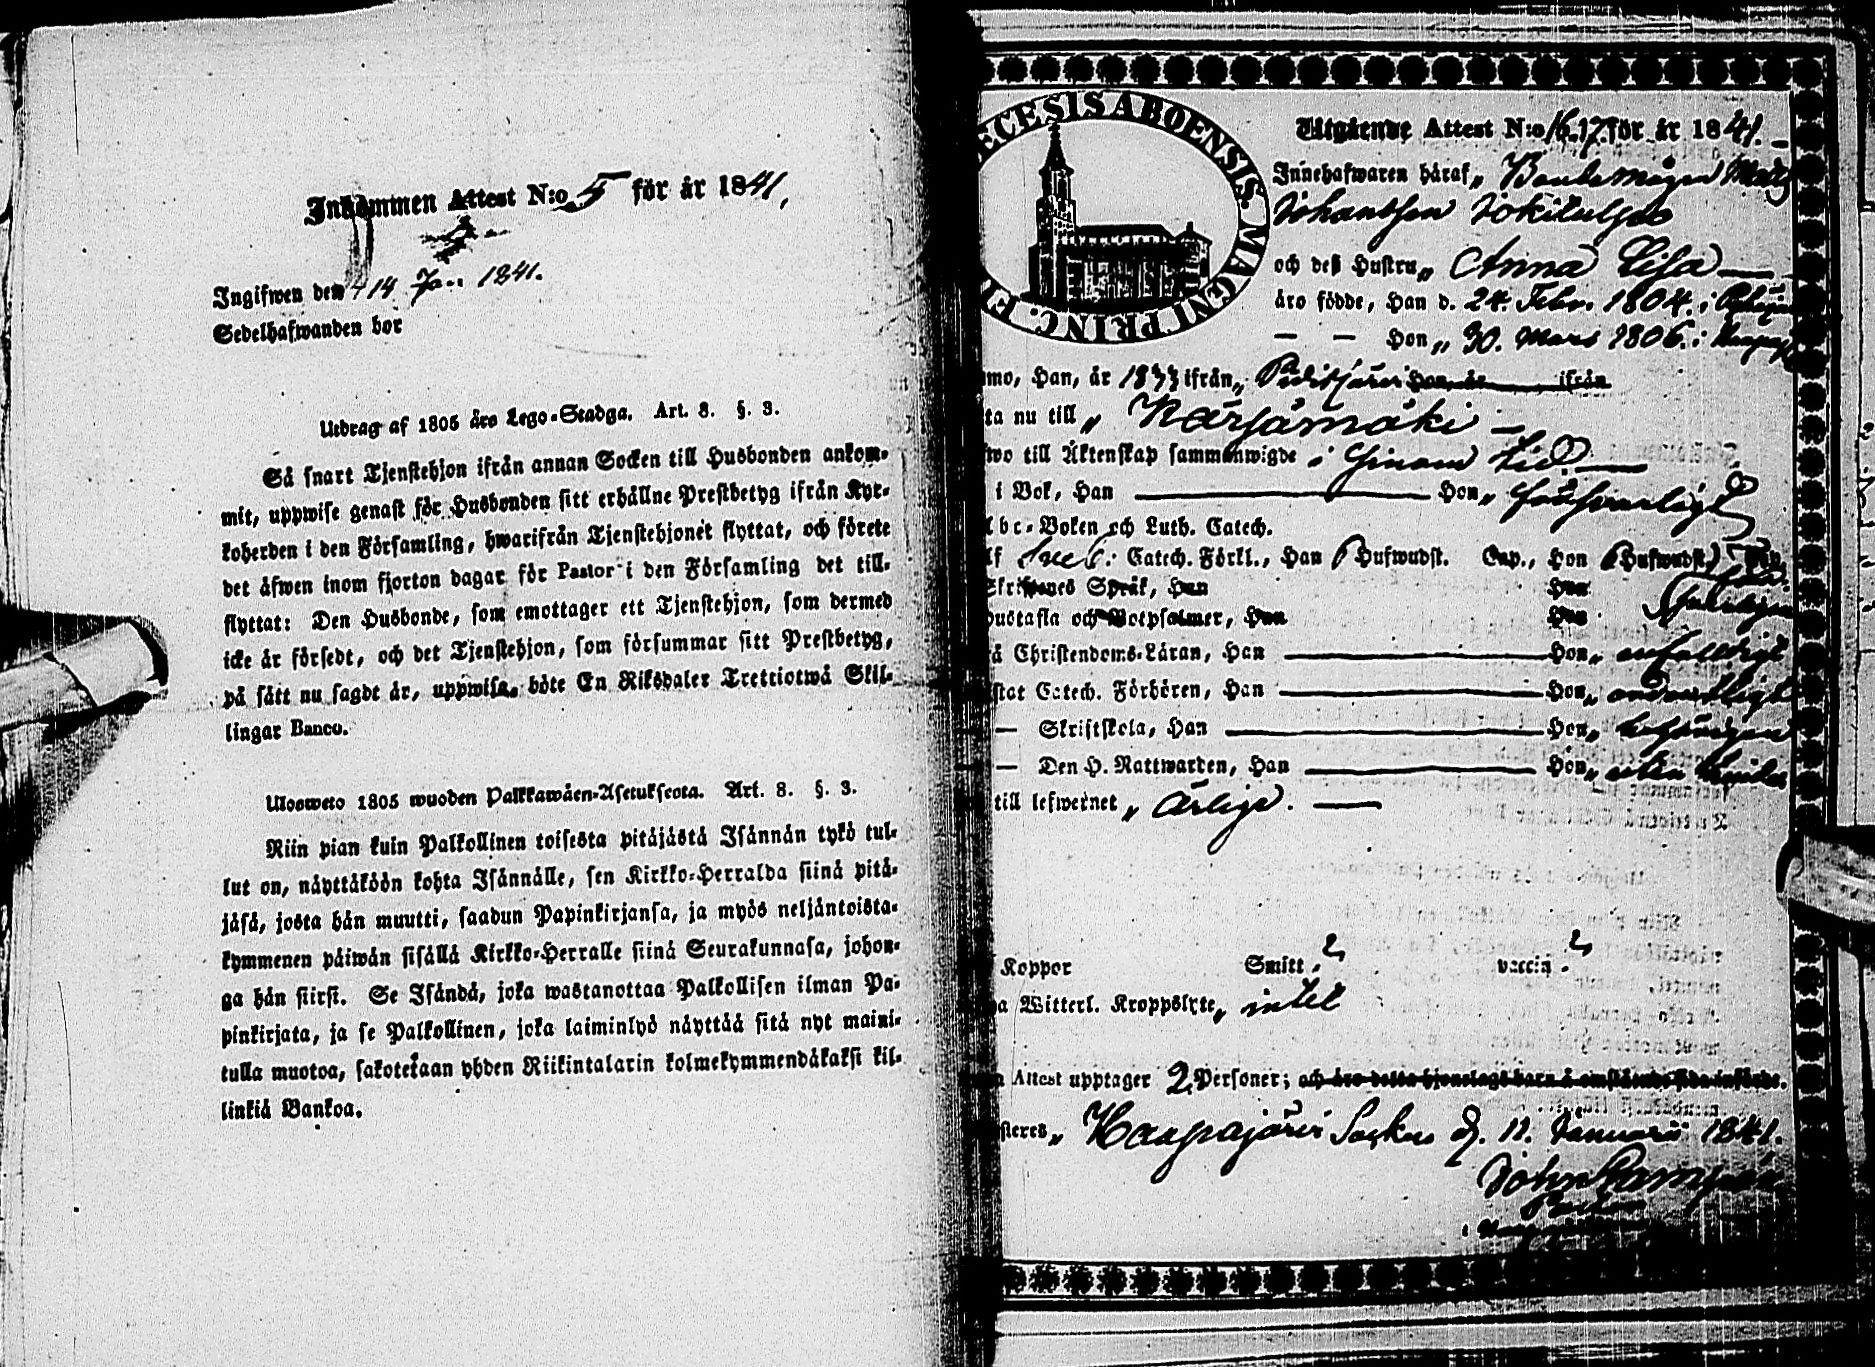 Inkommen Attest N:o 5 för år 1841,
Ingifwen den 14 Jan. 1841.
Sedelhafwanden bor
Utdrag af 1805 års Lego-Stadga. Art. 8. §. 3.
Så snart Tjenstehjon ifrån annan Socken till Husbonden ankom-
mit, uppwise genast för Husbonden sitt erhållne Prestbetyg ifrån Kyr-
koherden i den Församling, hwarifrån Tjenstehjonet flyttat, och förete
det äfwen inom fjorton dagar för Pastor i den Församling det till-
flyttat: Den Husbonde, som emottager ett Tjenstehjon, som dermed
icke är försedt, och det Tjenstehjon, som försummar sitt Prestbetyg,
på sätt nu sagdt är, uppwisa, böte En Riksdaler Trettiotwå Skil-
lingar Banco.
Ulosweto 1805 wuoden Palkkawäen-Asetuksesta. Art. 8. §. 3.
Niin pian kuin Palkollinen toisesta pitäjästä Isännän tykö tul-
lut on, näyttäköön kohta Isännälle, sen Kirkko-Herralda siinä pitä-
jäsä, josta hän muutti, saadun Papinkirjansa, ja myös neljäntoista-
kymmenen päiwän sisällä Kirkko-Herralle siinä Seurakunnasa, johon-
ga hän siirsi. Se Isändä, joka wastanottaa Palkollisen ilman Pa-
pinkirjata, ja se Palkollinen, joka laiminlyö näyttää sitä nyt maini-
tulla muotoa, sakotetaan yhden Riikintalarin kolmekymmendäkaksi kil-
linkiä Bankoa.
ECESIS ABOENSIS. MAGNI PRINC. F
Utgående Attest N:o 16.17. för år 1841.
Innehafwaren häraf, Bondemågen Matts
Johansson Jokikulju
och deß Hustru, Anna Lisa
äro födde, Han d. 24. Febr. 1804. i
Hon, 30. Mars 1806. i
mo, Han, år 1833 ifrån, Pidisjärvi Hon, år ifrån
ta nu till, Kärsämäki
wo till Äktenskap sammanwigde i
i Bok, Han Hon, försvarligt
bc-Boken och Luth. Catech.
Catech. Förkl., Han 6 Hufwudst. Cap., Hon 6 Hufwudst.
Skriftenes Språk, Han Hon
hustafla och Botpsalmer, Han Hon
å Christendoms-Läran, Han Hon, enfaldigt
stat Catech. Förhören, Han Hon, ordentligt
— Skriftskola, Han Hon,
— Den H. Nattwarden, Han Hon, utan hinder
till lefwernet, ärliga.
Koppor Smitt. 2 vaccin. 2
a Witterl. Kroppslyte, intet
Attest upptager 2 Personer; och äro detta hjonelags barn å omstående sida införde.
steres, Haapajärvi Socken d. 11. Januarii 1841.
John
Pastor
i